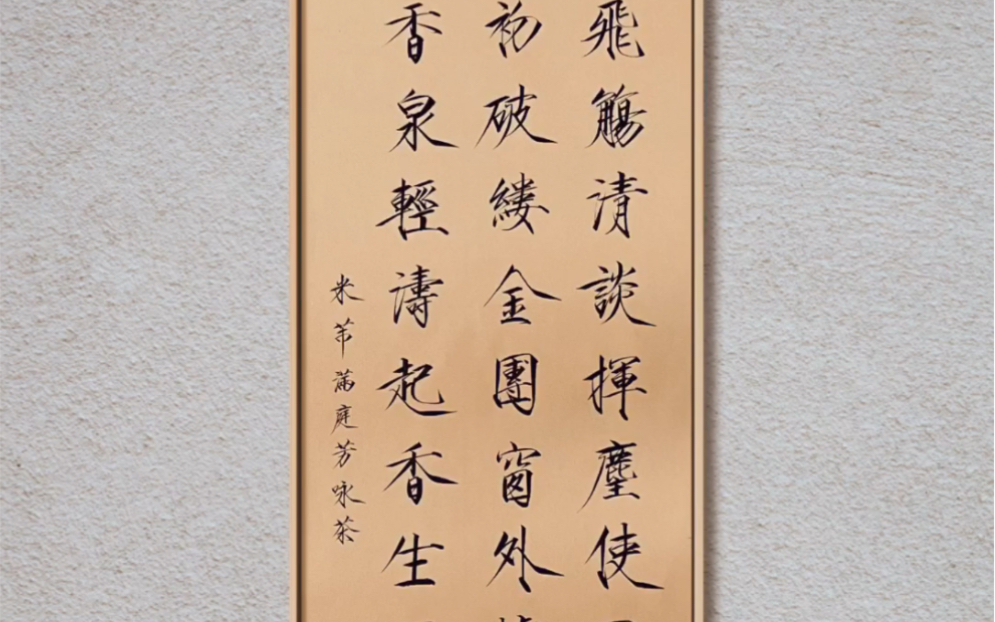 飛觴清談揮麈使
初破縷金團窗外
香泉輕濤起香生
米芾滿庭芳咏茶